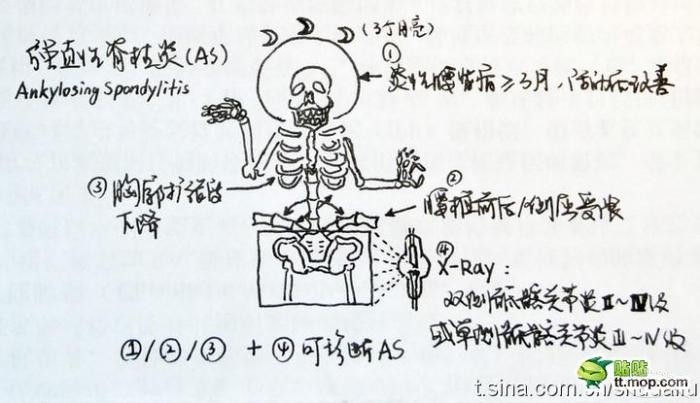 强直性脊柱炎(AS)
Ankylosing Spondylitis
(3个月亮)
① 炎性腰背痛≥3月,活动后改善
② 腰椎前后/侧屈受限
③ 胸廓扩张度
下降
④
X-Ray:
双侧骶髂关节炎Ⅱ~Ⅳ级
或单侧骶髂关节炎Ⅲ~Ⅳ级
①/②/③ + ④可诊断AS
贴贴
tt.mop.com
t.sina.com.cn/